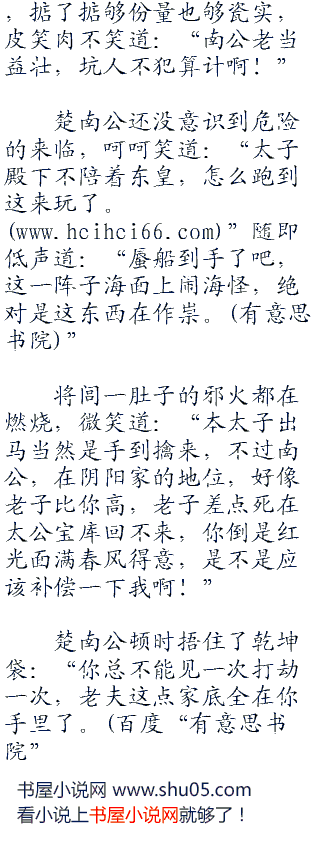 ，掂了掂够份量也够瓷实，
皮笑肉不笑道：“南公老当
益壮，坑人不犯算计啊！”
楚南公还没意识到危险
的来临，呵呵笑道：“太子
殿下不陪着东皇，怎么跑到
这来玩了。
(www.hcihci66.com)”随即
低声道：“蜃船到手了吧，
这一阵子海面上闹海怪，绝
对是这东西在作祟。(有意思
书院)”
将闾一肚子的邪火都在
燃烧，微笑道：“本太子出
马当然是手到擒来，不过南
公，在阴阳家的地位，好像
老子比你高，老子差点死在
太公宝库回不来，你倒是红
光面满春风得意，是不是应
该补偿一下我啊！”
楚南公顿时捂住了乾坤
袋：“你总不能见一次打劫
一次，老夫这点家底全在你
手里了。(百度“有意思书
院”
书屋小说网 www.shu05.com
看小说上书屋小说网就够了！